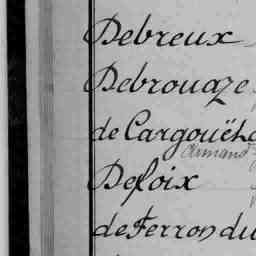 Debreux
Debrouaze
de Cargouëh
Armand
Defoix
de Ferron du